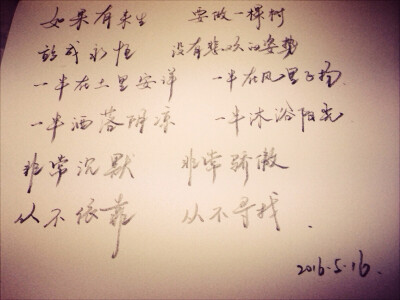 如果有来生 要做一棵树
站成永恒 没有悲欢的姿势
一半在土里安详 一半在风里飞扬
一半洒落阴凉 一半沐浴阳光
非常沉默 非常骄傲
从不依靠 从不寻找.
2016.5.16.